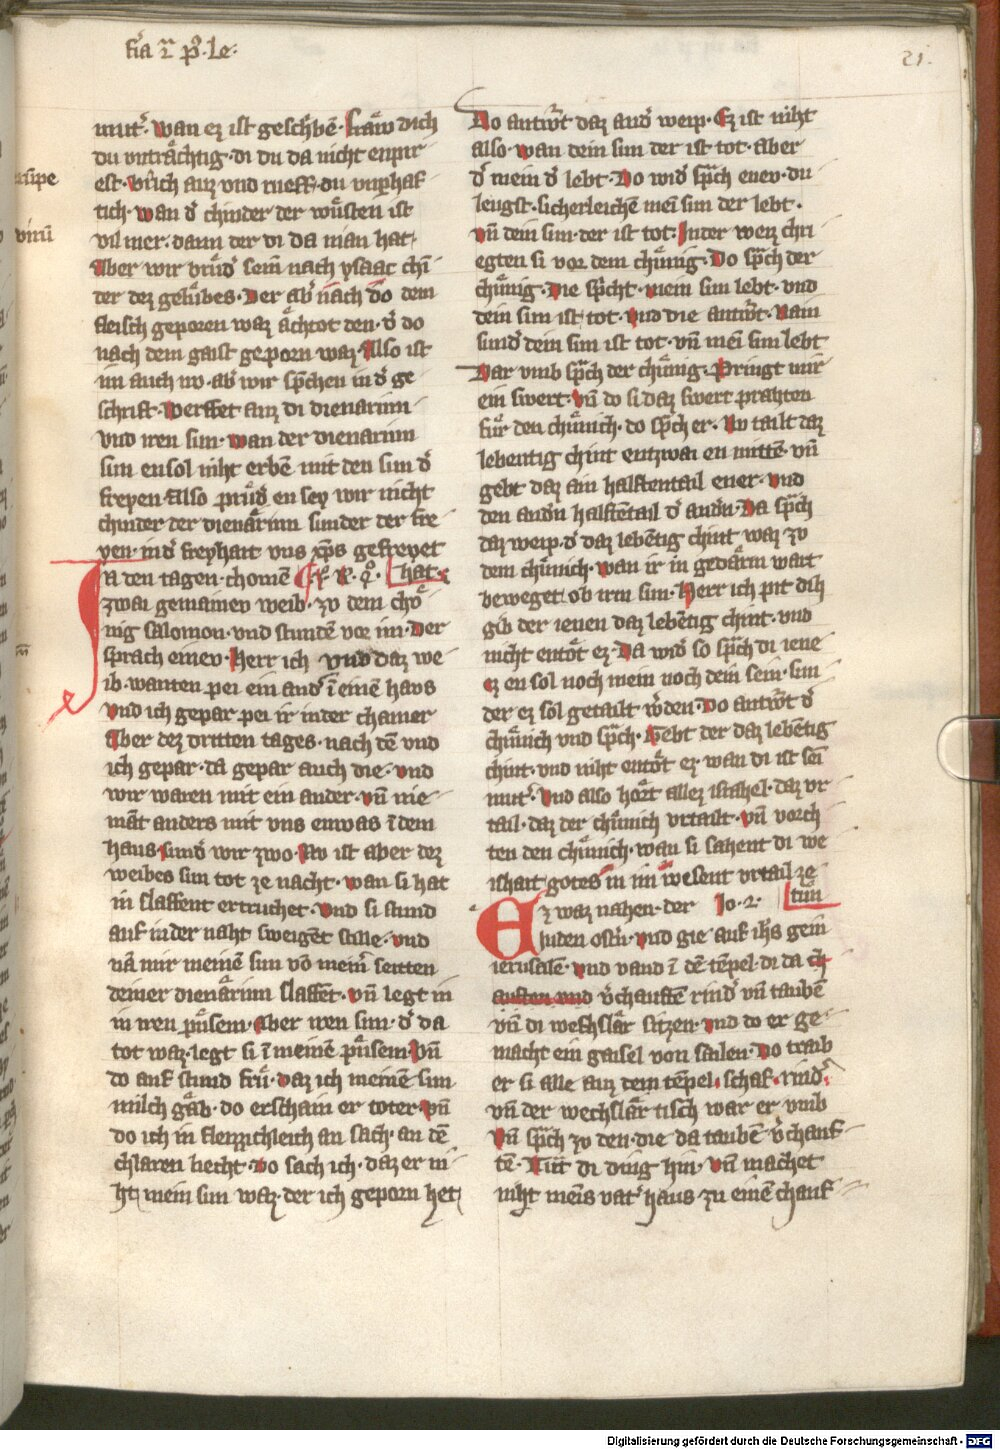 fi͛a ii p͛ Le.
21.
mut͛. wan ez ist geschͥbē. fräw dich
du vnträchtig. di du da nicht enpir
est. vͥich auz vnd rueff. du vnp͛haf
tich. wan d͛ chinder der wüsten ist
vil mer. dann der di da man hat.
Aber wir brüd͛ sein nach ysaac chī
der dez gelübes. Der ab͛ nach do dem
fleisch geporen waz ächtot den. d͛ do
nach dem gaist geporn waz. Also ist
im auch nv. ab͛ wir sp̄chen in d͛ ge
schrift. Werffet auz di dienarinn
vnd iren sun. wan der dienarinn
sun ensol niht erbē mit den sun d͛
freyen. Also prüd͛ en sey wir nicht
chinder der dienärinn sunder der fre
yen. in d͛ freyhait vns xp̄s gefreyet
hat.
Ja den tagen. chomē
zwai gemainev weib. zv dem chö
nig salomon. vnd stundē vor im. Der
sprach einev. Herr ich vnd daz we
ib. wanten pei ein and͛ ī einē havs
vnd ich gepar pei ir in der chamer
Aber dez dritten tages. nach dē vnd
ich gepar. da gepar auch die. vnd
wir waren mit ein ander. vn̄ nie
māt anders mit vns enwas ī dem
haus. sund͛ wir zwo. Nv ist aber dez
weibes sun tot ze nacht. wan si hat
in slaffent ertruchet. Vnd si stund
auf in der naht sweigēt stille. vnd
nā mir meinē sun vō mein͛ seitten
deiner dienärinn slaffēt. vn̄ legt in
in iren püsem. Aber iren sun. d͛ da
tot waz. legt si ī meinē püsem. Vn̄
do auf stund frü. daz ich meinē sun
milch gäb. do erschain er toter. vn̄
do ich in flenzzichleich an sach. an dē
chlaren liecht. Do sach ich. daz er ni
ht mein sun waz. der ich geporn het
Do antw͛t daz and͛ weip. Ez ist niht
also. wan dein sun der ist tot. aber
d͛ mein d͛ lebt. Do wid͛ sp̄ch enev. du
leugst. sicherleichē mei sun der lebt.
vn̄ dein sun. der ist tot. In der weiz chri
egten si vor dem chünig. Do sp̄ch der
chünig. Die sp̄cht. mein sun lebt. vnd
dein sun ist tot. vnd die antw͛t. Nain
sund͛ dein sun ist tot. vn̄ mei sun lebt
Dar vmb sp̄ch der chünig. Pringt mir
ein swert. Vn̄ do si daz swert prahten
für den chünich. do sp̄ch er. Nv tailt daz
lebentig chint entzwai en mittē. vn̄
gebt daz ain halftentail ener. vnd
den and͛n halftētail d͛ and͛n. Da sp̄ch
daz weip. d͛ daz lebētig chint waz zv
dem chünich. wan ir in gedärm wart
beweget ob irm sun. Herr ich pit dih
gib der ienen daz lebētig chint. vnd
nicht entöt ez. Da wid͛ so sp̄ch di iene
ez en sol noch mein noch dein sein. sun
der ez sol getailt w͛den. Do antw͛t d͛
chünich vnd sp̄ch. Gebt der daz lebētig
chint. vnd niht entöt ez wan di ist sei
mut͛. Vnd also hort allez israhel. daz vr
tail. daz der chünich vrtailt. vn̄ vorch
ten den chünich. wan si sahent di we
ishait gotes in im wesent vrtail ze
tun
Ez waz nahen. der Jo. 2.
Juden ost͛n. vnd gie auf ih̄s gein
ierusalē. vnd vand ī dē tēpel. di da ch̄
auften vnd v͛chauftē rind͛ vn̄ taubē
vn̄ di wechslär sitzen. vnd do er ge
macht ein gaisel von sailen. Do traib
er si alle auz dem tēpel. schaf. rind͛.
vn̄ der wechslär tisch warf er vmb
Vn̄ sp̄ch zv den. die da taubē v͛chauf
tē. di ding hin. vn̄ machet
niht meis vat͛ haus zu einē chauf
Digitalisierung gefördert durch die Deutsche Forschungsgemeinschaft - DFG